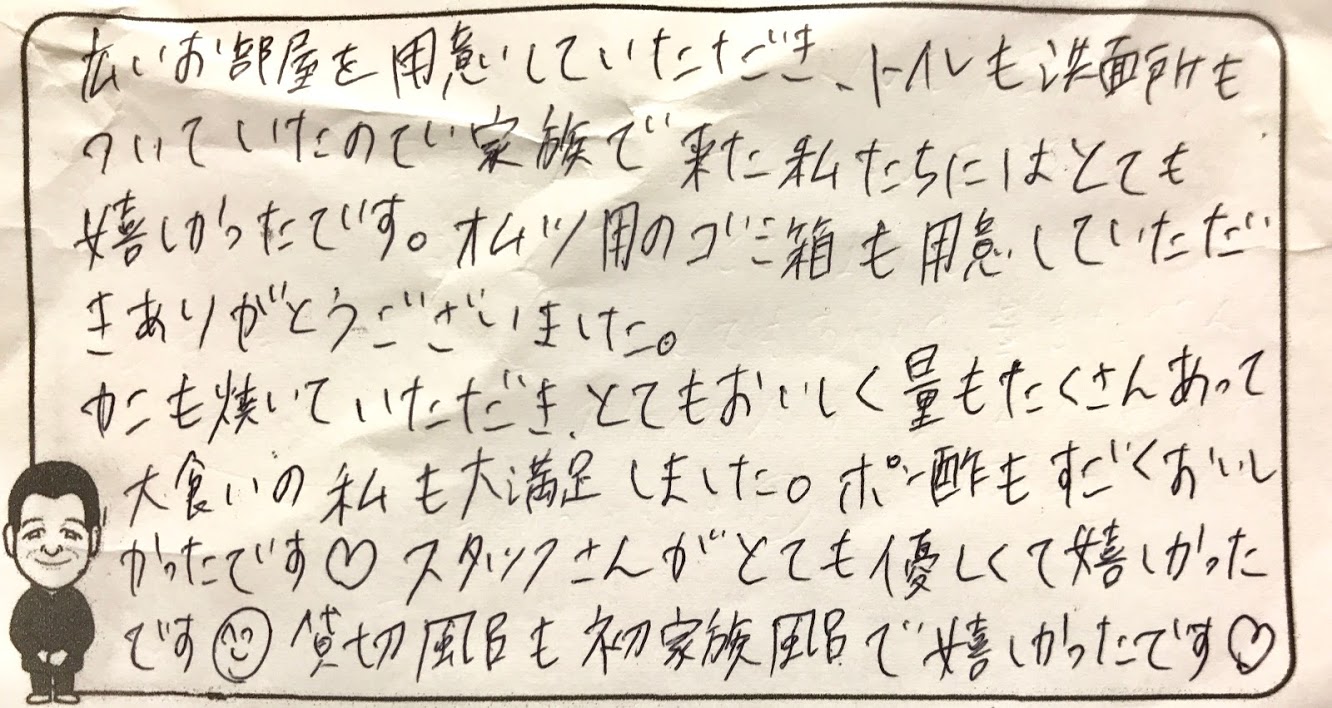 広いお部屋を用意していただき、トイレも洗面所も
ついていたので家族で来た私たちにはとても
嬉しかったです。オムツ用のゴミ箱も用意していただ
きありがとうございました。
かにも焼いていただき、とてもおいしく量もたくさんあって
大食いの私も大満足しました。ポン酢もすごくおいし
かったです♡ スタッフさんがとても優しくて嬉しかった
です☺ 貸切風呂も初家族風呂で嬉しかったです♡